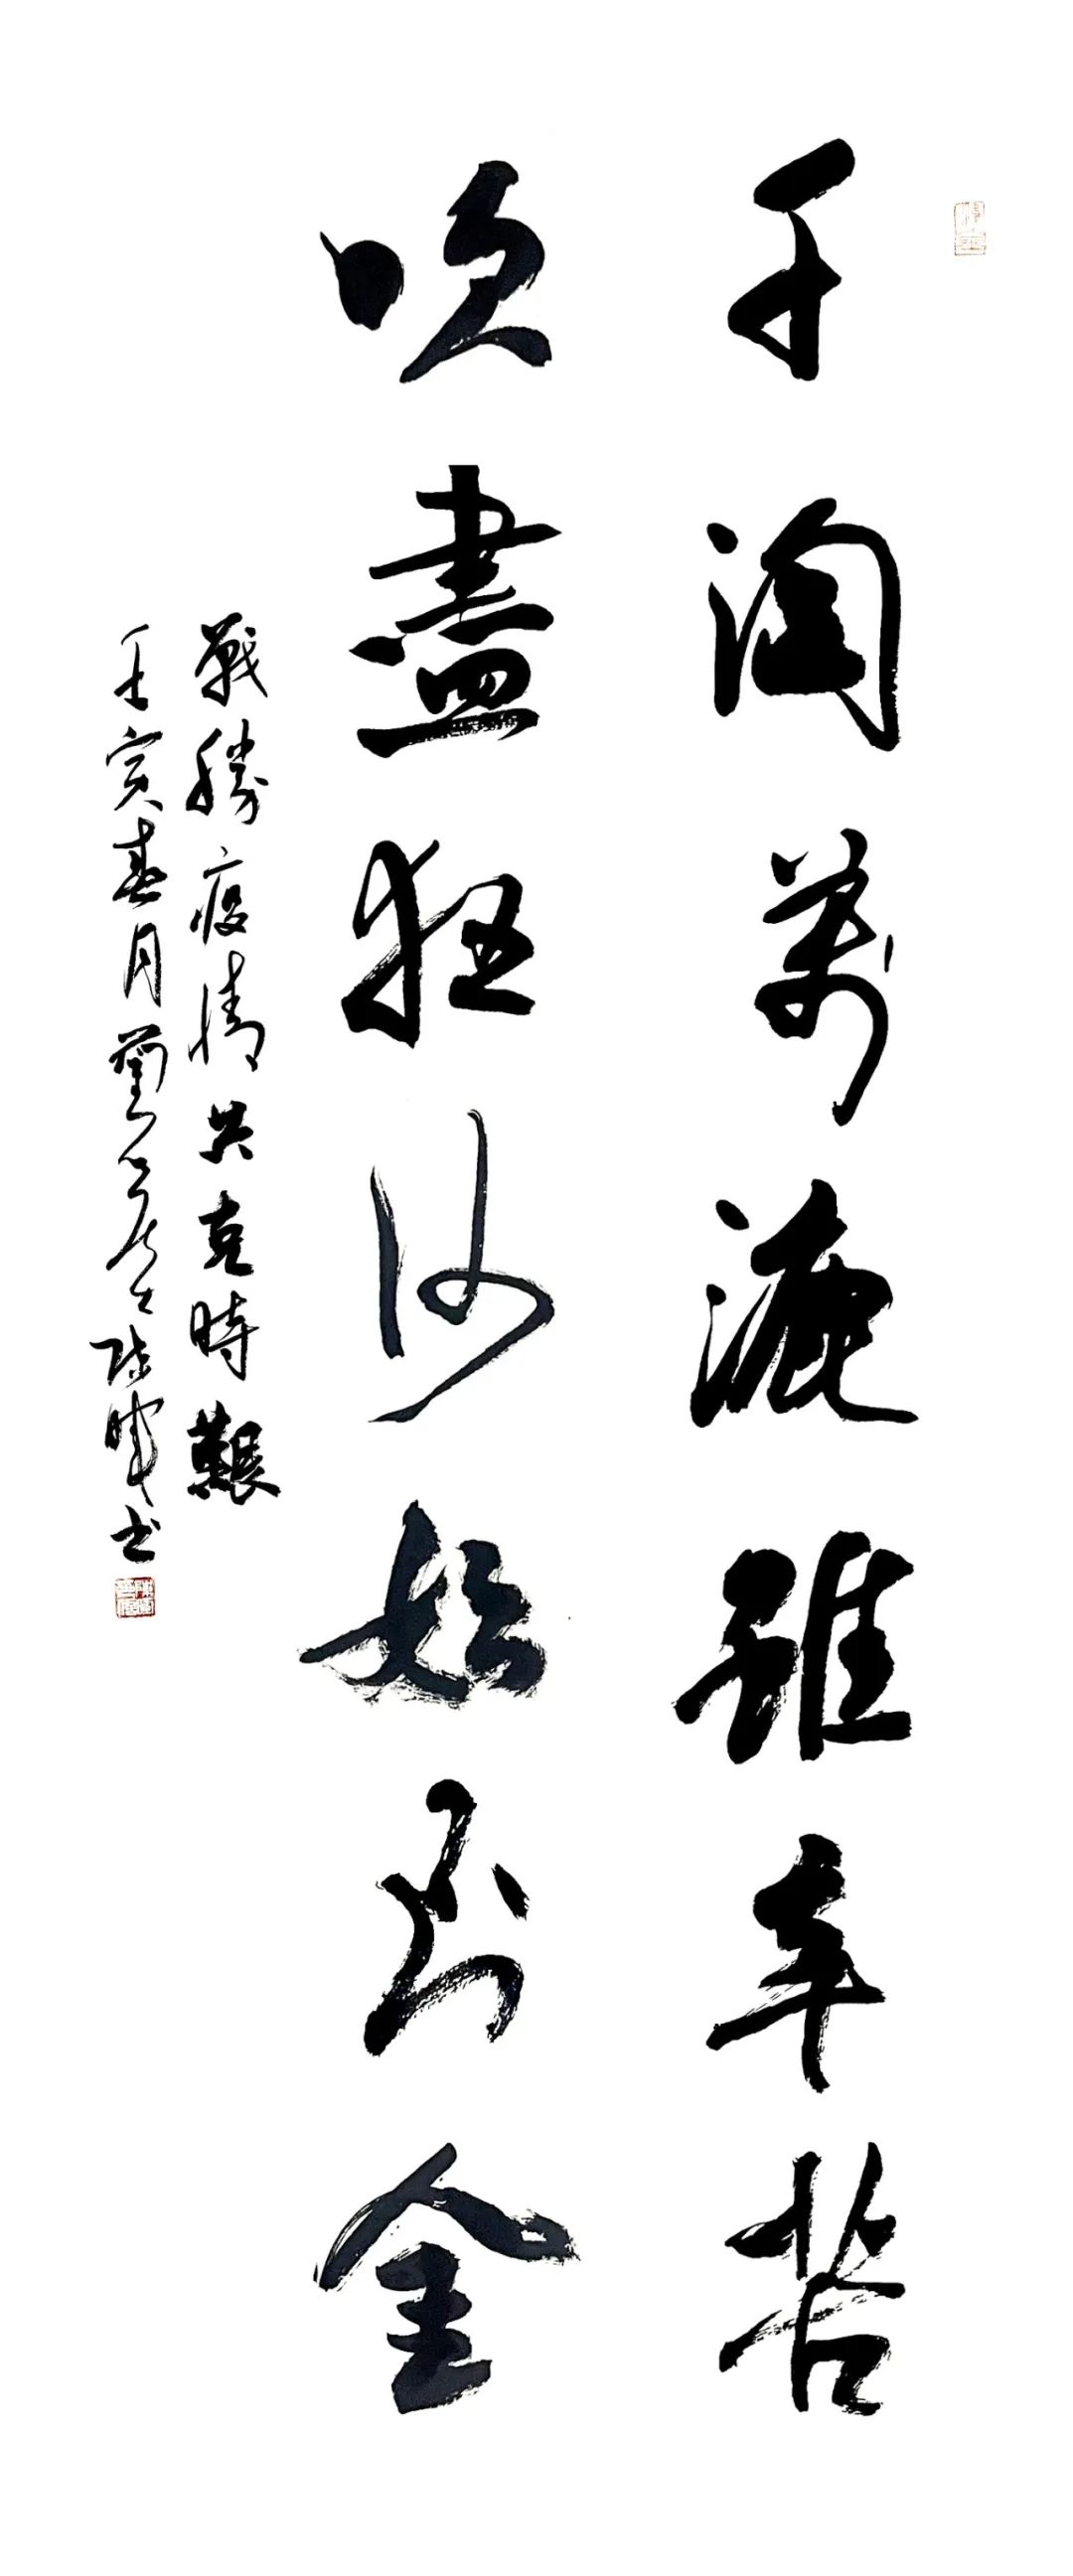 千淘萬漉雖辛苦
吹盡狂沙始到金
戰勝疫情共克時艱
壬寅春月居士陳書